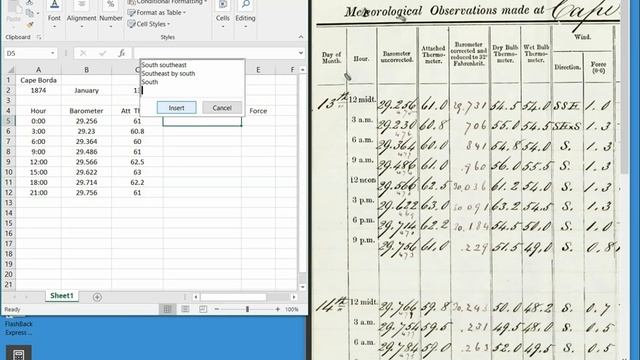 Paste
B I U
Conditional Formatting
Format as Table
Cell Styles
Clipboard
Font
Editing
D5
fx
A B C F
1 Cape Borda
2 1874 January 13
4 Hour Barometer Att Th Force
5 0:00 29.256 61
6 3:00 29.23 60.8
7 6:00 29.364 60
8 9:00 29.486 61
9 12:00 29.566 62.5
10 15:00 29.622 63
11 18:00 29.714 62.2
12 21:00 29.756 61
13
14
15
16
17
18
19
20
21
South southeast
Southeast by south
South
Insert Cancel
Sheet1
Ready 100%
FlashBack
Express ...
Meteorological Observations made at Cape
Day of Month. Hour. Barometer uncorrected. Attached Thermometer. Barometer corrected and reduced to 32° Fahrenheit. Dry Bulb Thermometer. Wet Bulb Thermometer. Wind.
Direction. Force (0-6)
13th 12 midt. 29.256 61.0 29.731 54.5 54.0 SSE. 1.0
3 a.m. 29.230 60.8 706 55.0 54.5 SExS 1.3
6 a.m. 29.364 60.0 841 54.8 54.0 S. 1.3
9 a.m. 29.486 61.0 .960 56.0 55.5 S. 1.3
12 noon 29.566 62.5 30.036 61.2 54.0 S. 1.3
3 p.m. 29.622 63.0 30.091 63.2 54.5 S. 1.3
6 p.m. 29.714 62.2 30.184 54.5 51.0 S. 1.0
9 p.m. 29.756 61.0 .229 51.5 49.0 S. 0.8
14th 12 midt. 29.766 59.8 30.243 50.0 48.2 S. 0.7
3 a.m. 29.754 59.5 .231 49.5 48.0 S. 0.5
6 a.m. 29.784 59.0 .263 52.0 49.5 S. 0.5